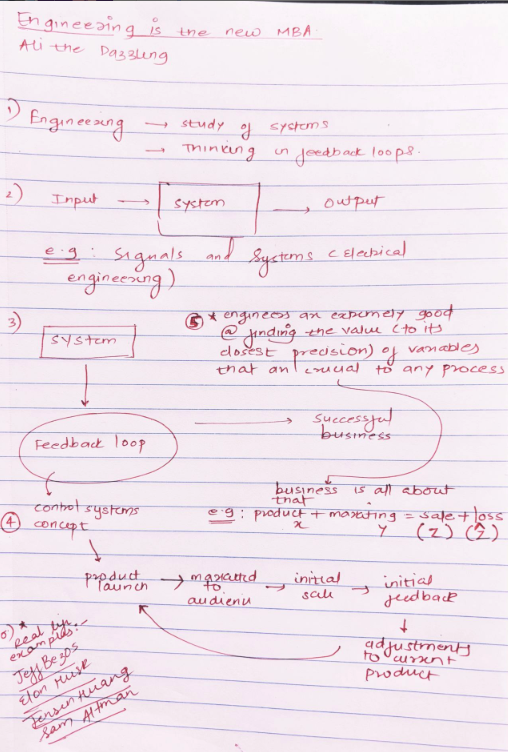 Engineering is the new MBA
Ali the Dazzling
1) Engineering → study of systems
→ Thinking in feedback loops.
2) Input → system → output
e.g : Signals and Systems (Electrical
engineering)
3) system
Feedback loop → successful
business
⑤ * engineers are extremely good
@ finding the value (to its
closest precision) of variables
that are crucial to any process
business is all about
that
e.g : product + marketing = sale + loss
x y (z) (ẑ)
④ control systems
concept
product
launch → marketed
to
audience → initial
sale → initial
feedback
adjustments
to current
product
6) * Real life
examples:-
Jeff Bezos
Elon Musk
Jensen Huang
Sam Altman